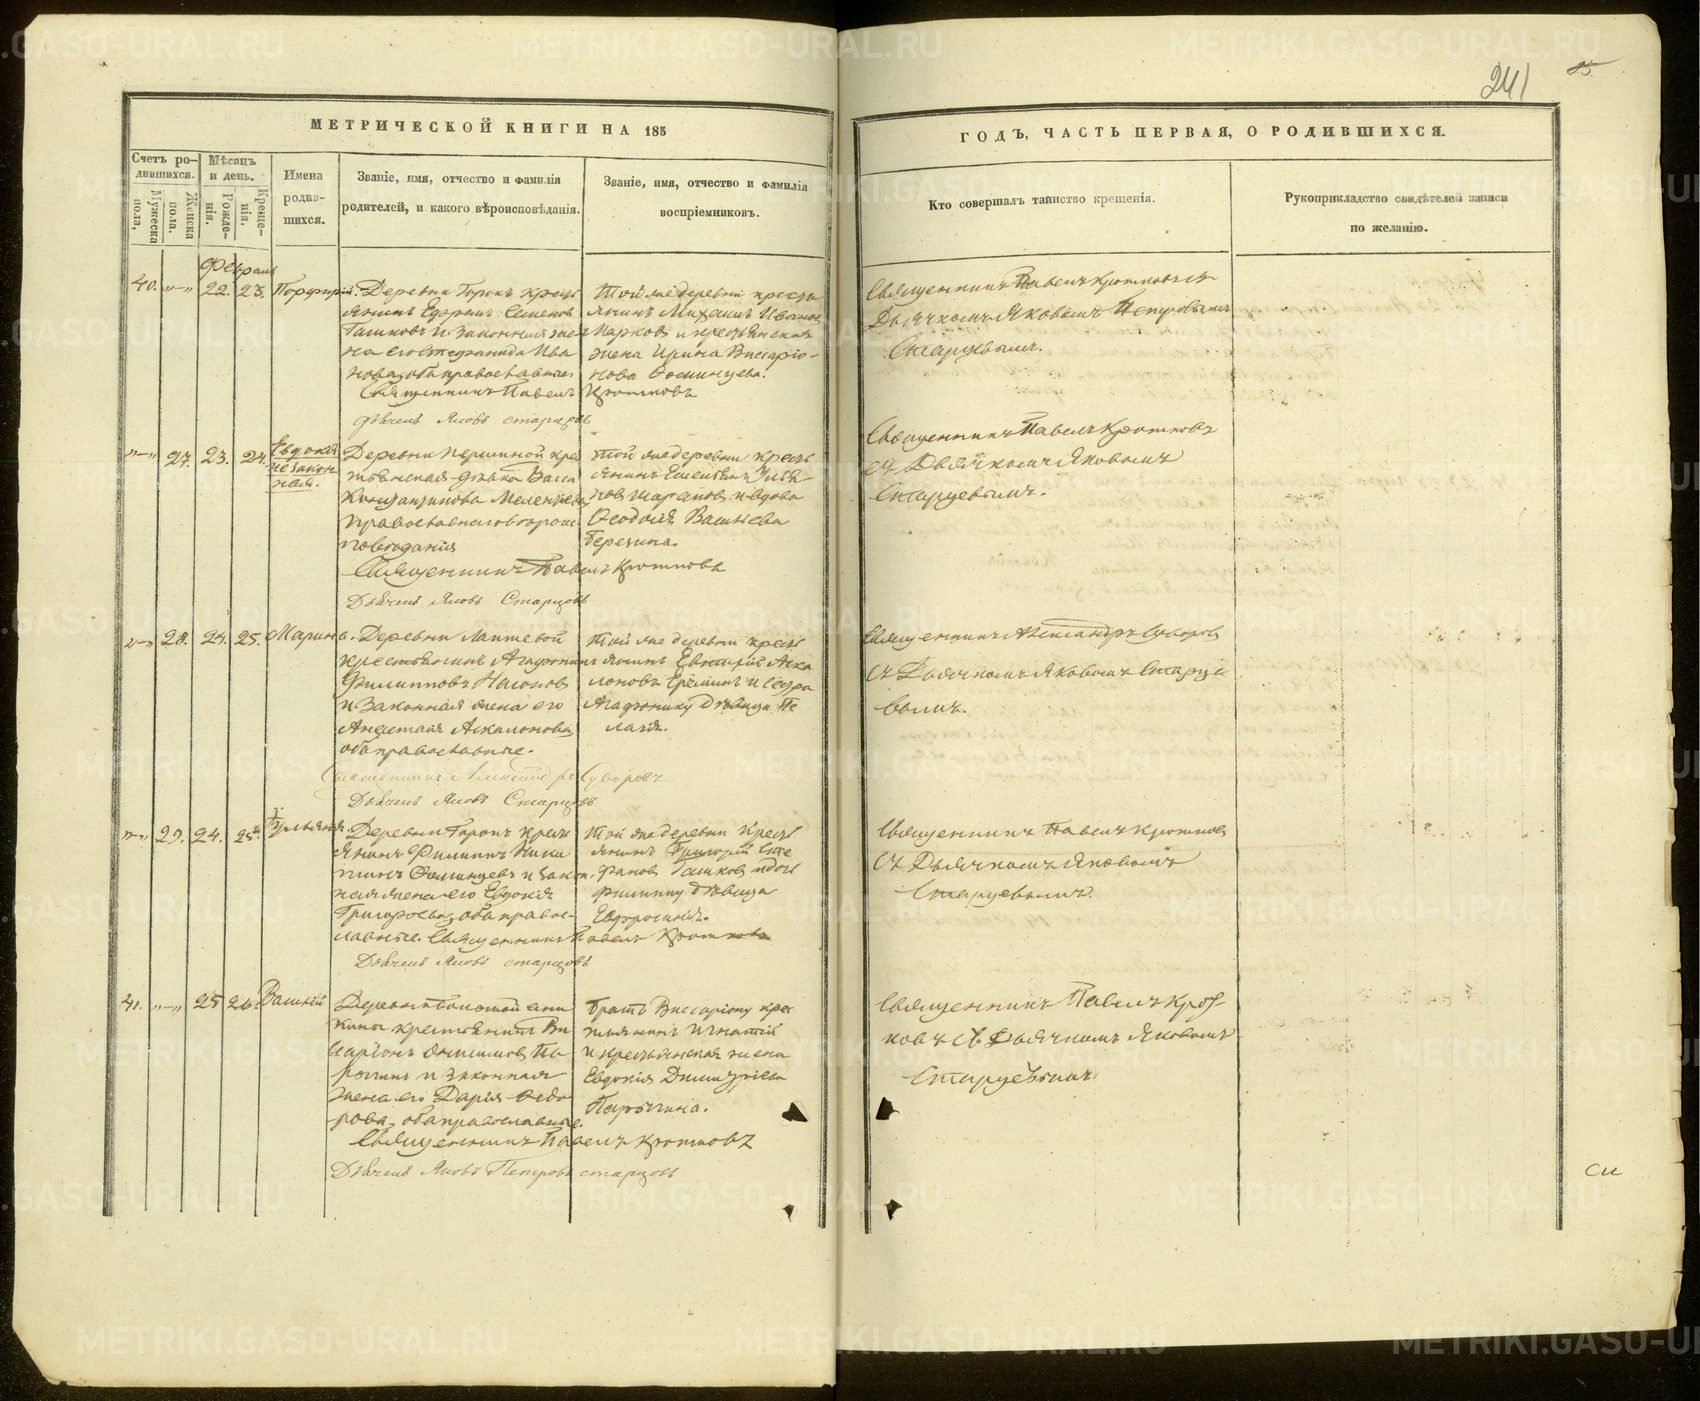 241
МЕТРИЧЕСКОЙ КНИГИ НА 185
ГОДЪ, ЧАСТЬ ПЕРВАЯ, О РОДИВШИХСЯ.
Счетъ ро-
дившихся.
Мужеска
пола,
Женска
пола.
Мѣсяцъ
и день.
Рожде-
нія.
Креще-
нія.
Имена
родив-
шихся.
Званіе, имя, отчество и фамилія
родителей, и какого вѣроисповѣданія.
Званіе, имя, отчество и фамилія
воспріемниковъ.
Кто совершалъ таинство крещенія.
Рукоприкладство свидѣтелей записи
по желанію.
Февраль
40. 22. 23. Порфирій.
Деревни Горокъ кресть
янинъ Ефремъ Семеновъ
Гашковъ и законная же
на его Стефанида Ива
нова, оба православные
Священникъ Павелъ Кротковъ
Дьячекъ Яковъ Старцовъ
Той же деревни кресть
янинъ Михаилъ Ивановъ
Марковъ и крестьянская
жена Ирина Виссаріо-
нова Фоминцева.
Священникъ Павелъ Кротковъ съ
Дьячкомъ Яковомъ Петровымъ
Старцевымъ.
27. 23. 24. Евдокія
незакон
ная.
Деревни Першиной кре
тьянская дѣвка Васса
Константинова
православнаго вѣроис
повѣданія
Священникъ Павелъ Кроткова
Дьячекъ Яковъ Старцовъ
той же деревни кресть
янинъ Емельянъ Улья-
новъ и вдова
Ѳеодосія Васильева
Березина.
Священникъ Павелъ Кротковъ
съ Дьячкомъ Яковомъ
Старцевымъ.
28. 24. 25. Марина.
Деревни Лаптевой
крестьянинъ Агафоникъ
Филипповъ
и законная жена его
Анфетаія Аскалонова
оба православные.
Священникъ Александръ Суворовъ
Дьячекъ Яковъ Старцовъ
Той же деревни кресть
янинъ Евстафій Аска
лоновъ Ереминъ и сестра
Агафонику дѣвица Пе
лагія.
Священникъ Александръ Суворовъ
съ Дьячкомъ Яковомъ Старце
вымъ.
29. 24. 25. Ульянія
Деревни Горокъ кресть
янинъ Филиппъ Ники
тинъ Фоминцевъ и закон
ная жена его Евдокія
Григорьева, оба правос-
лавные. Священникъ Павелъ Кротковъ
Дьячекъ Яковъ Старцовъ
Той же деревни Кресть
янинъ Григорій Сте
фановъ Гашковъ и дочь
Филиппу дѣвица
Евфросинія.
Священникъ Павелъ Кротковъ
съ Дьячкомъ Яковомъ
Старцевымъ.
41. 25 26. Василій
крестьянинъ Ви
саріонъ Онисимовъ Па
рыгинъ и законная
жена его Дарія Ѳедо
рова, оба православные.
Священникъ Павелъ Кротковъ
Дьячекъ Яковъ Петровъ Старцовъ
Братъ Виссаріону крес
тьянинъ Игнатій
и крестьянская жена
Евдокія Димитріева
Парыгина.
Священникъ Павелъ Крот-
ковъ съ Дьячкомъ Яковомъ
Старцевымъ
METRIKI.GASO-URAL.RU